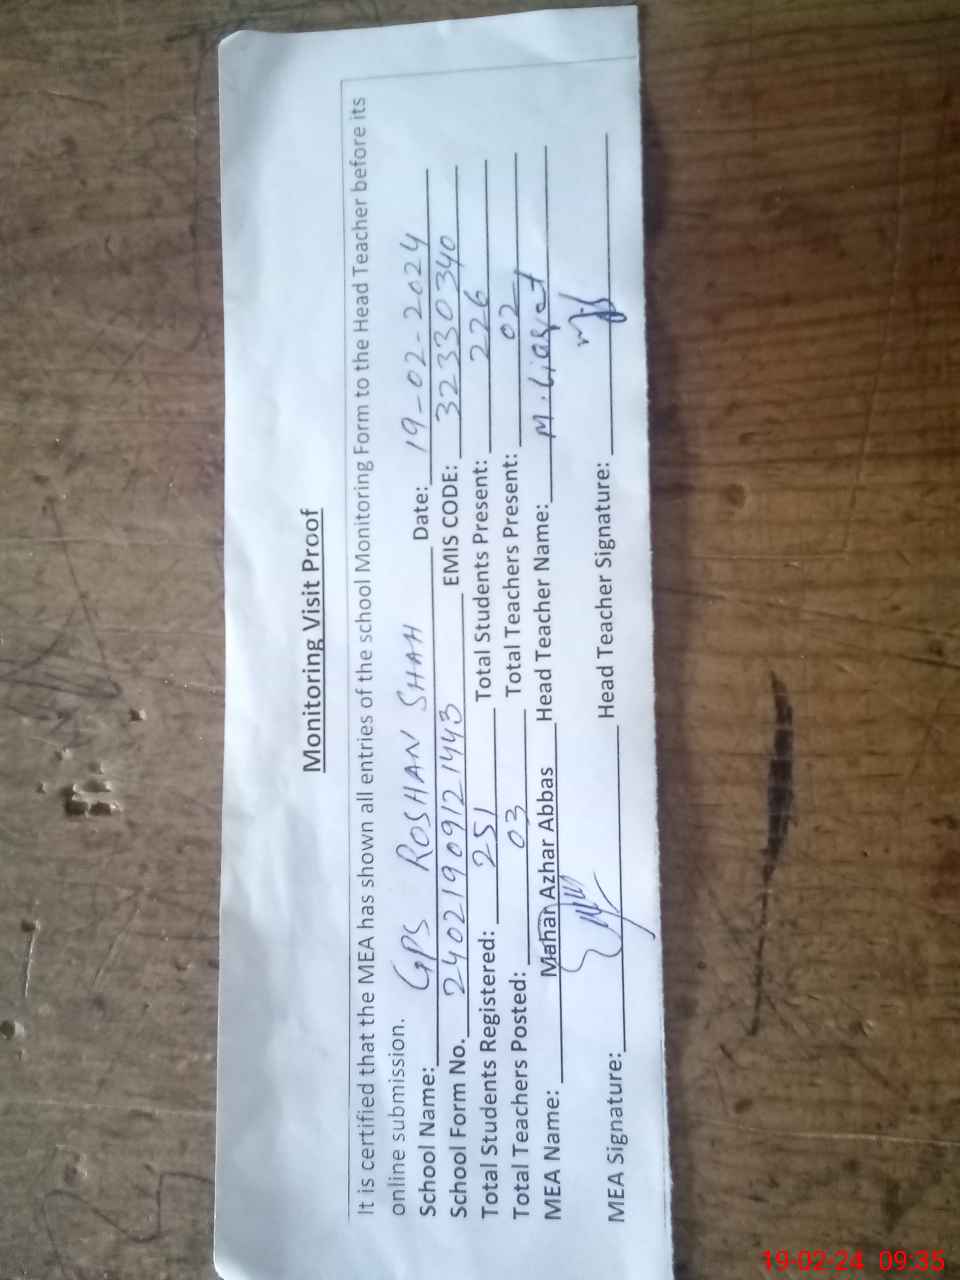 Monitoring Visit Proof
It is certified that the MEA has shown all entries of the school Monitoring Form to the Head Teacher before its
online submission.
School Name: GPS ROSHAN SHAH Date: 19-02-2024
School Form No. 24021909121443 EMIS CODE: 32330340
Total Students Registered: 251 Total Students Present: 226
Total Teachers Posted: 03 Total Teachers Present: 02
MEA Name: Mahar Azhar Abbas Head Teacher Name: M. Liaqat
MEA Signature: Head Teacher Signature:
19-02-24 09:35